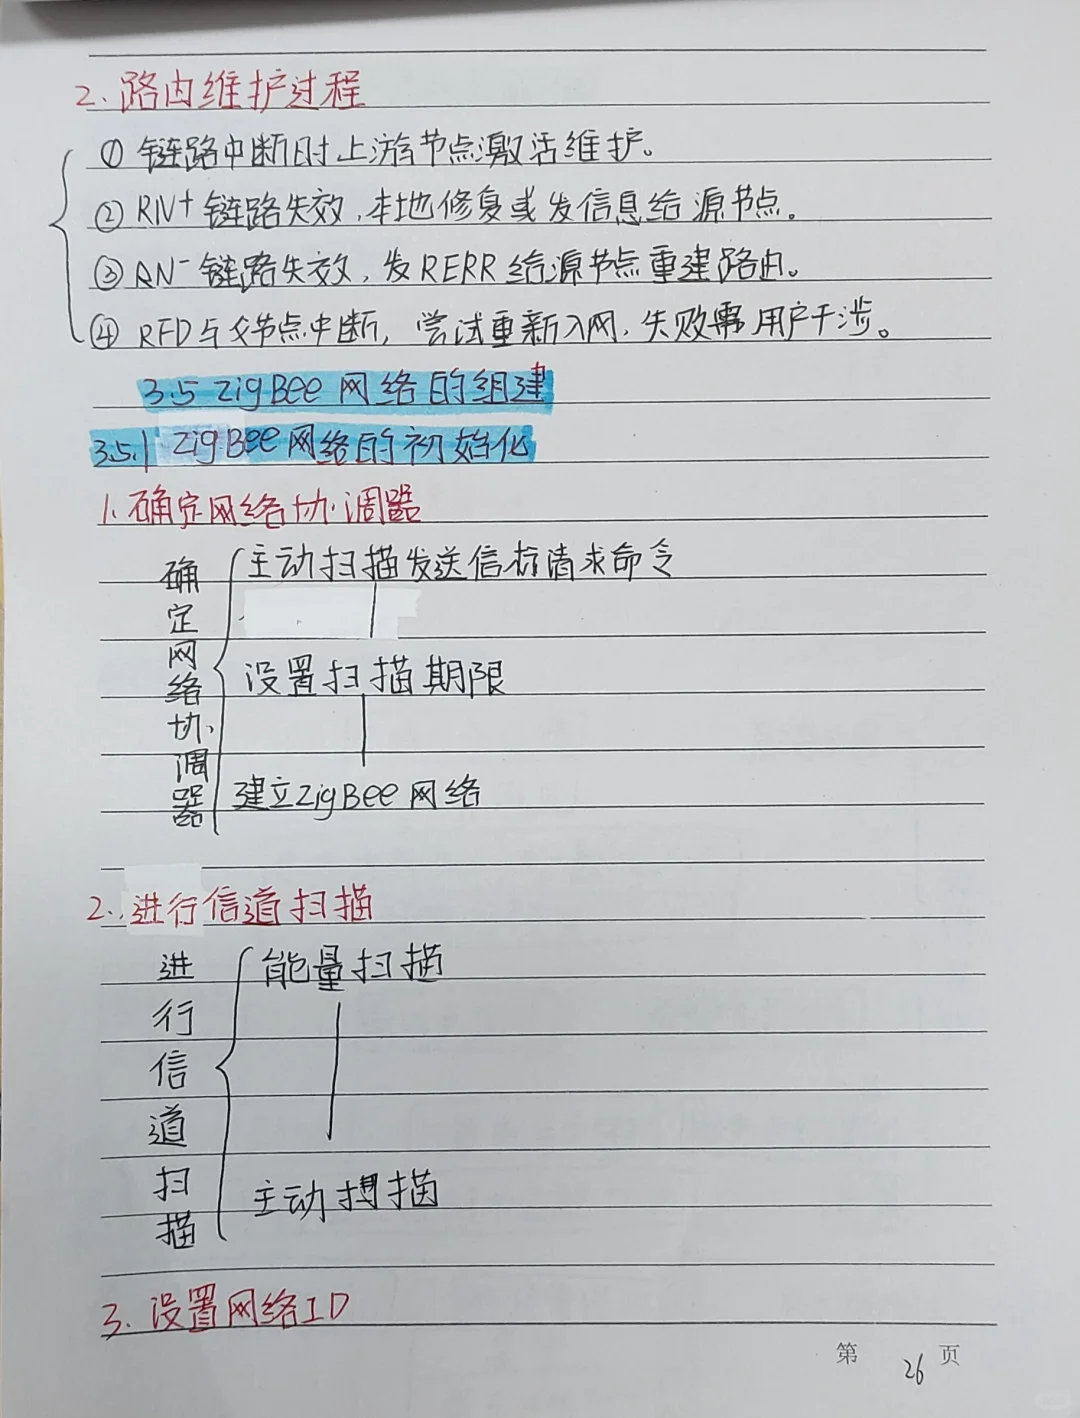 2.路由维护过程
①链路中断时上游节点激活维护。
②RN+链路失效,本地修复或发信息给源节点。
③RN-链路失效,发RERR给源节点重建路由。
④RFD与父节点中断,尝试重新入网,失败需用户干涉。
3.5 ZigBee网络的组建
3.5.1 ZigBee网络的初始化
1.确定网络协调器
确定网络协调器
主动扫描发送信标请求命令
设置扫描期限
建立ZigBee网络
2.进行信道扫描
进行信道扫描
能量扫描
主动扫描
3.设置网络ID
第 26 页